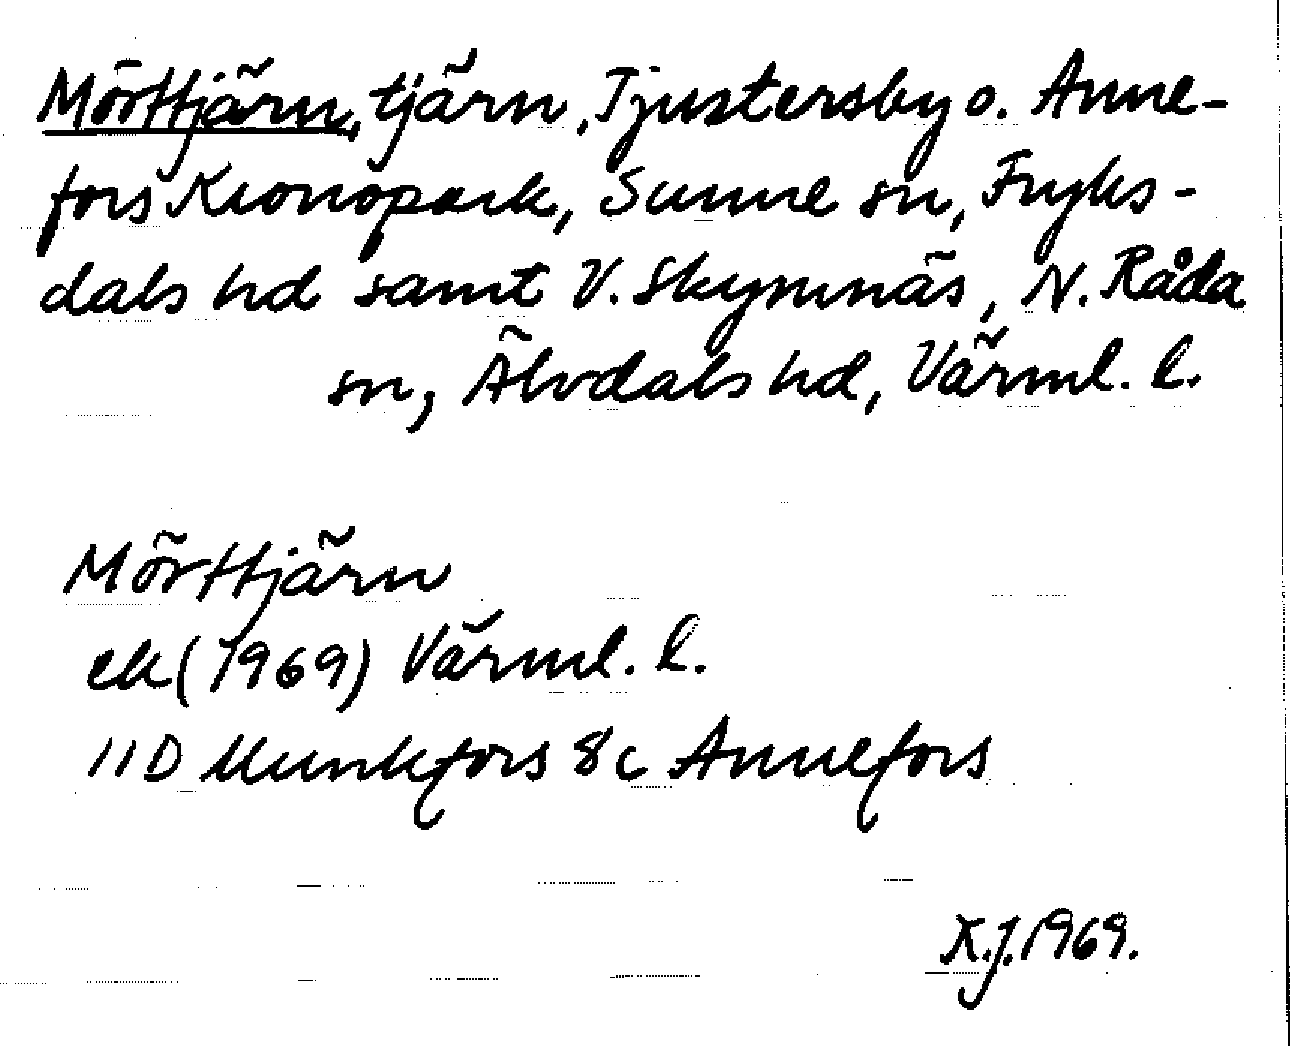 Mörttjärn, tjärn, Tjustersby o. Anne-
fors Kronopark, Sunne sn, Fryks-
dals hd samt V. Skymnäs, N. Råda
sn, Älvdals hd, Värml. l.
Mörttjärn
ek (1969) Värml. l.
11D Munkfors 8c Annefors
K.J. 1969.